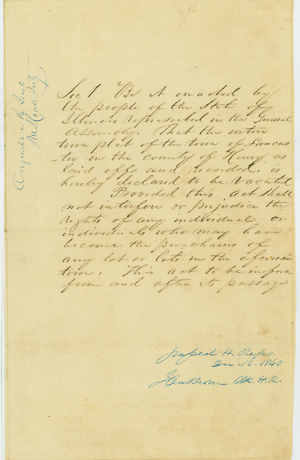 Sec 1 Be it enacted by
the people of the State of
Illinois represented in the General
Assembly. That the entire
town plat of the town of Lancas
-ter in the county of Henry as
laid off and recorded is
hereby declared to be vacated
Provided this Act shall
not interfere or prejudice the
rights of any individual or
individuals who may have
become the purchasers of
any lot or lots in the aforesaid
town. This act to be in force
from and after its passage
H.
1840
Brown Clk. H.R.